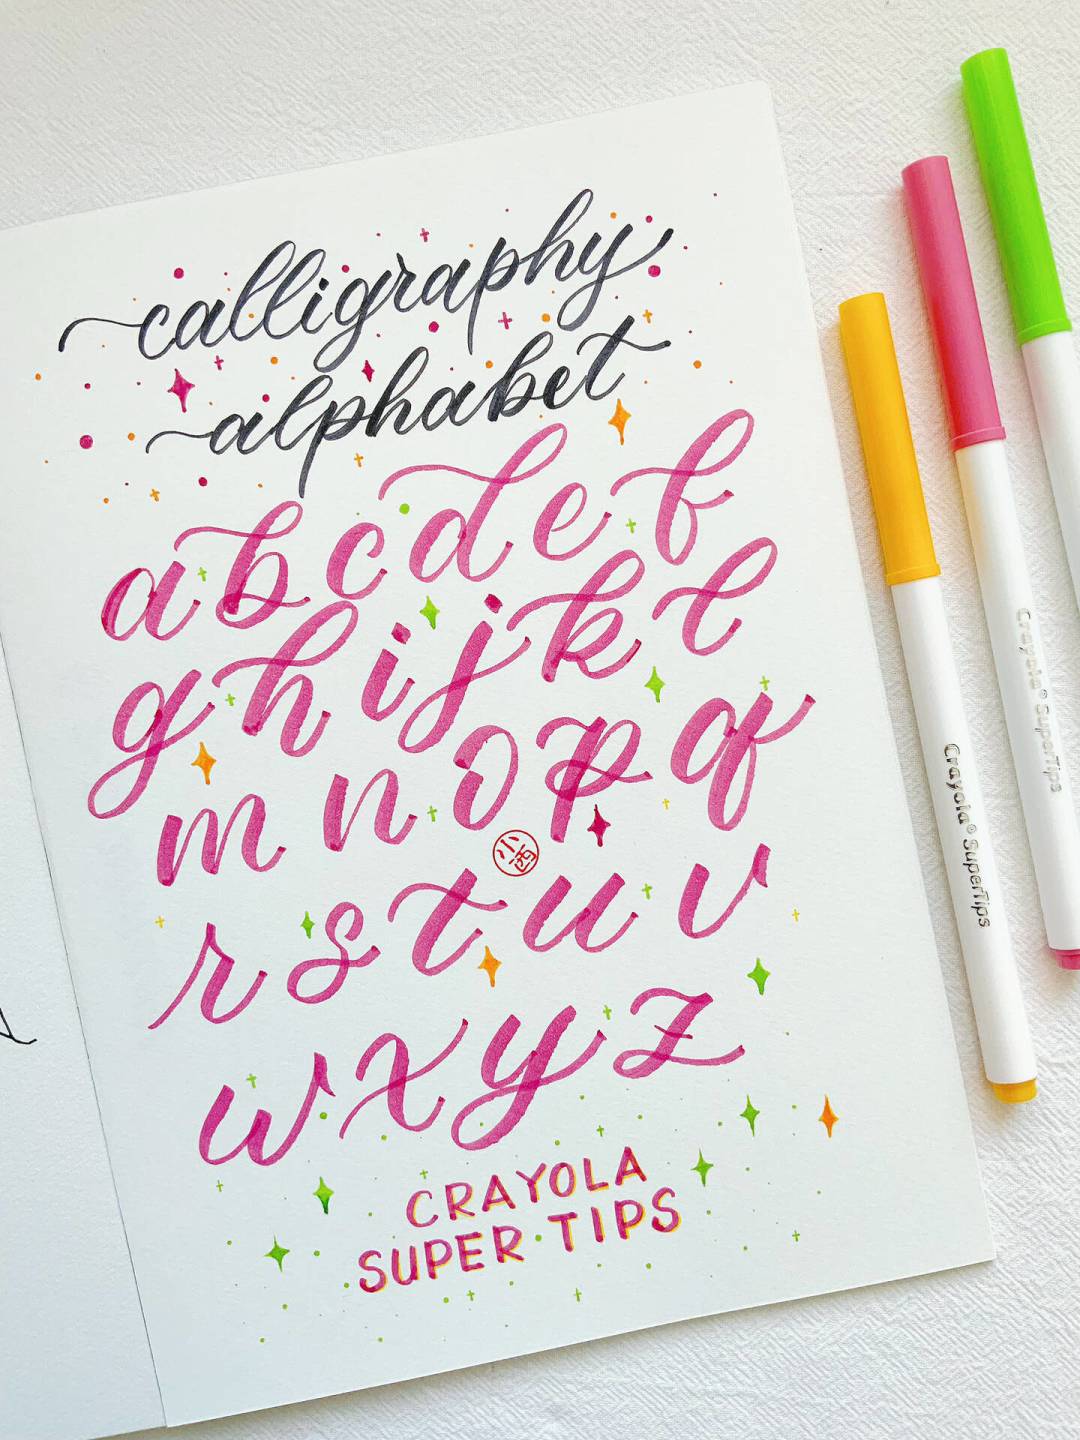 calligraphy
alphabet
a b c d e f
g h i j k l
m n o p q
小西
r s t u v
w x y z
CRAYOLA
SUPER TIPS
Crayola® SuperTips
Crayola® SuperTips